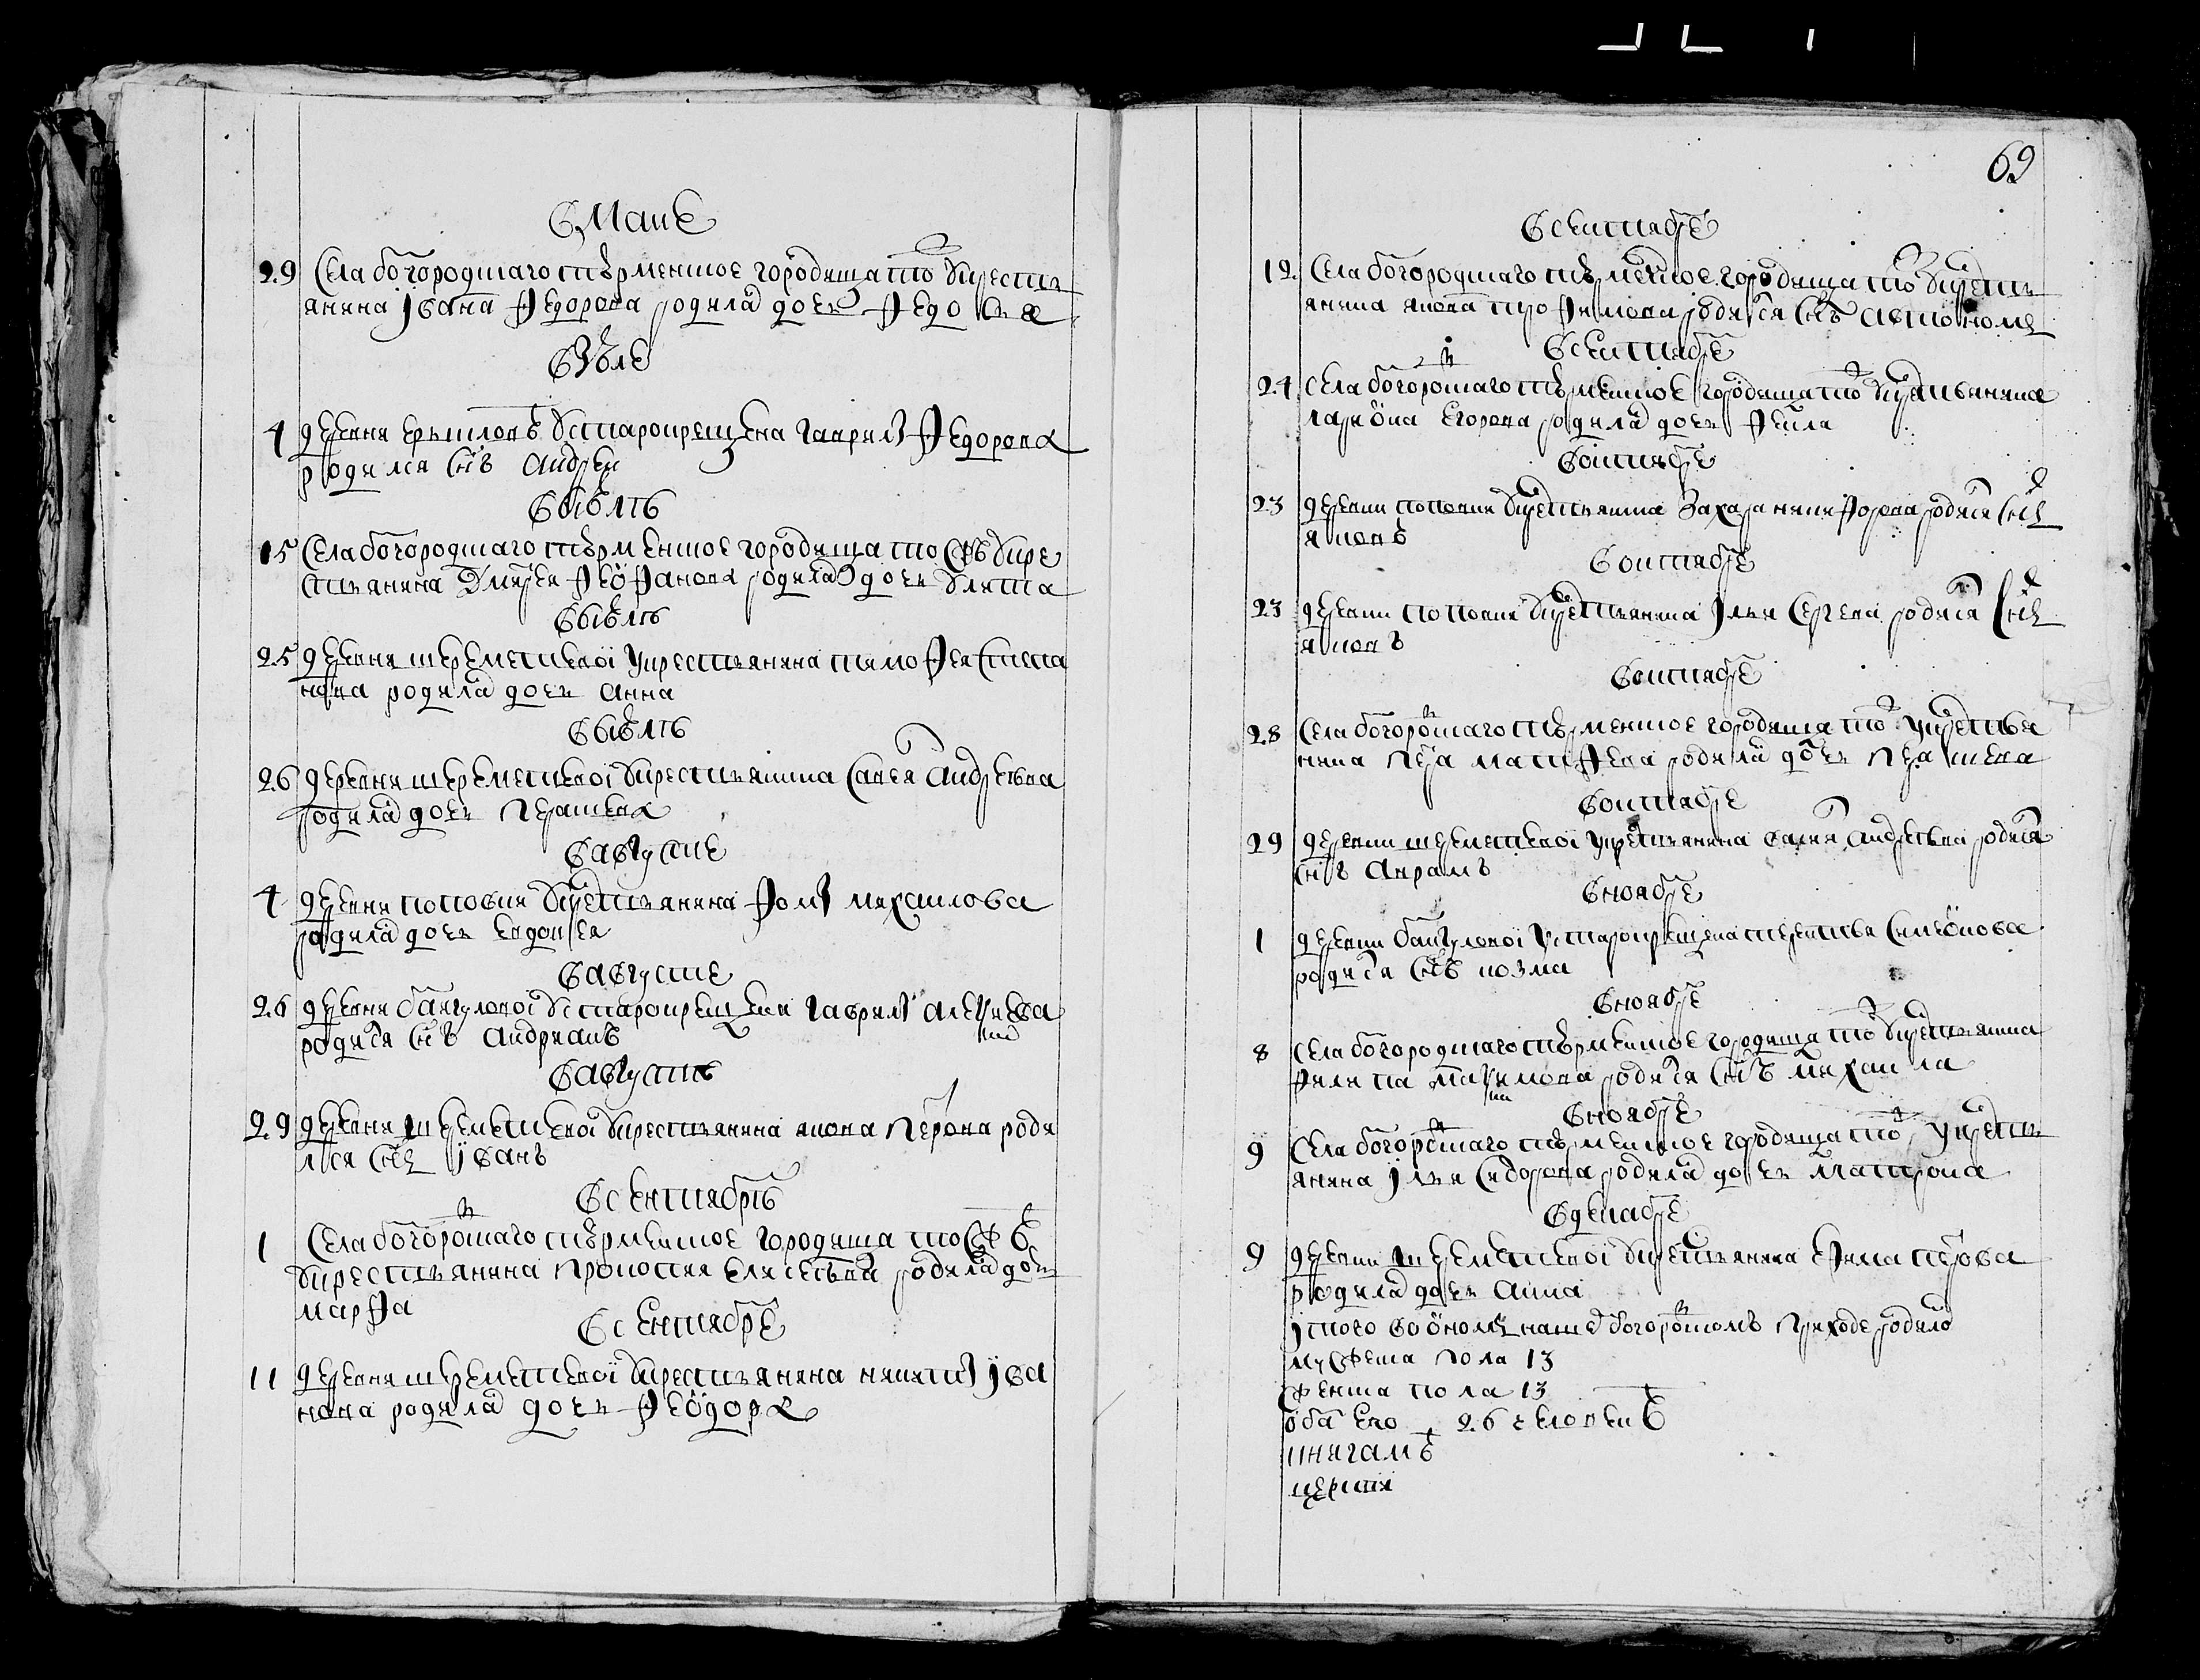 в Маие
29 Села богородцкаго тюрменское городища то ж укрести
янина Iвана Федорова родилас дочь Федосья
в Июле
4 деревни ермловъ у старокрещена гаврилы Федорова
родился снъ Андреи
в Июлѣ
15 Села богородцкаго тюрменское городища то жъ укре
стиянина Дмитрея Феофанова родилас дочь улита
в Июлѣ
25 деревни шереметевоi укрестиянина тимофея Степа
нова родилас дочь Анна
в Июлѣ
26 деревни шереметевоi укрестиянина Савея Андреева
родилас дочь Парасковя
в Августе
4 деревни поповки укрестиянина Фомы михаилова
родилас дочь евдокея
в Августе
26 деревни у старокрещена гаврилы Алексеева
родился снъ Андреанъ
в Августѣ
29 деревни шереметевоi укрестиянина якова Петрова роди
лся снъ Iванъ
в Сентябрѣ
1 Села богородцкаго тюрменское городища то жъ
укрестиянина Прокопея Елисеева родилас дочь
марфа
в Сентябрѣ
11 деревни шереметевоi укрестиянина никиты Iва
нова родилас дочь Феодора
69
в сентябре
12 Села богородцкаго тюрменское городища то ж укрести
янина якова трофимова родился снъ Автономъ
в сентябре
24 села богородцкаго тюрменское городища то ж укрестиянина
лариона Егорова родилас дочь Фекла
в октябре
23 деревни поповки укрестиянина Захара никифорова родился снъ
яковъ
в октябре
23 деревни поповки укрестиянина Iльи Сергеева родился снъ
яковъ
в октябре
28 Села богородцкаго тюрменское городища то ж укрестия
нина Петра матфеева родилас дочь Парасковея
в октябре
29 деревни шереметевоi укрестиянина Савея Андреева родился
снъ Аврамъ
в ноябре
1 деревни у старокрещена терентья Симеонова
родился снъ козма
в ноябре
8 Села богородцкаго тюрменское городища то ж укрестиянина
Филипа максимова родился снъ михаила
в ноябре
9 Села богородцкаго тюрменское городища то ж укрести
янина Iльи Сидорова родилас дочь матрона
в декабре
9 деревни шереметевоi укрестиянина ефима петрова
родилас дочь Анна
Iтого во ономъ нашем богородцкомъ приходе родилос
мужеска пола 13
женска пола 13
обаего 26 человекъ
книгамъ